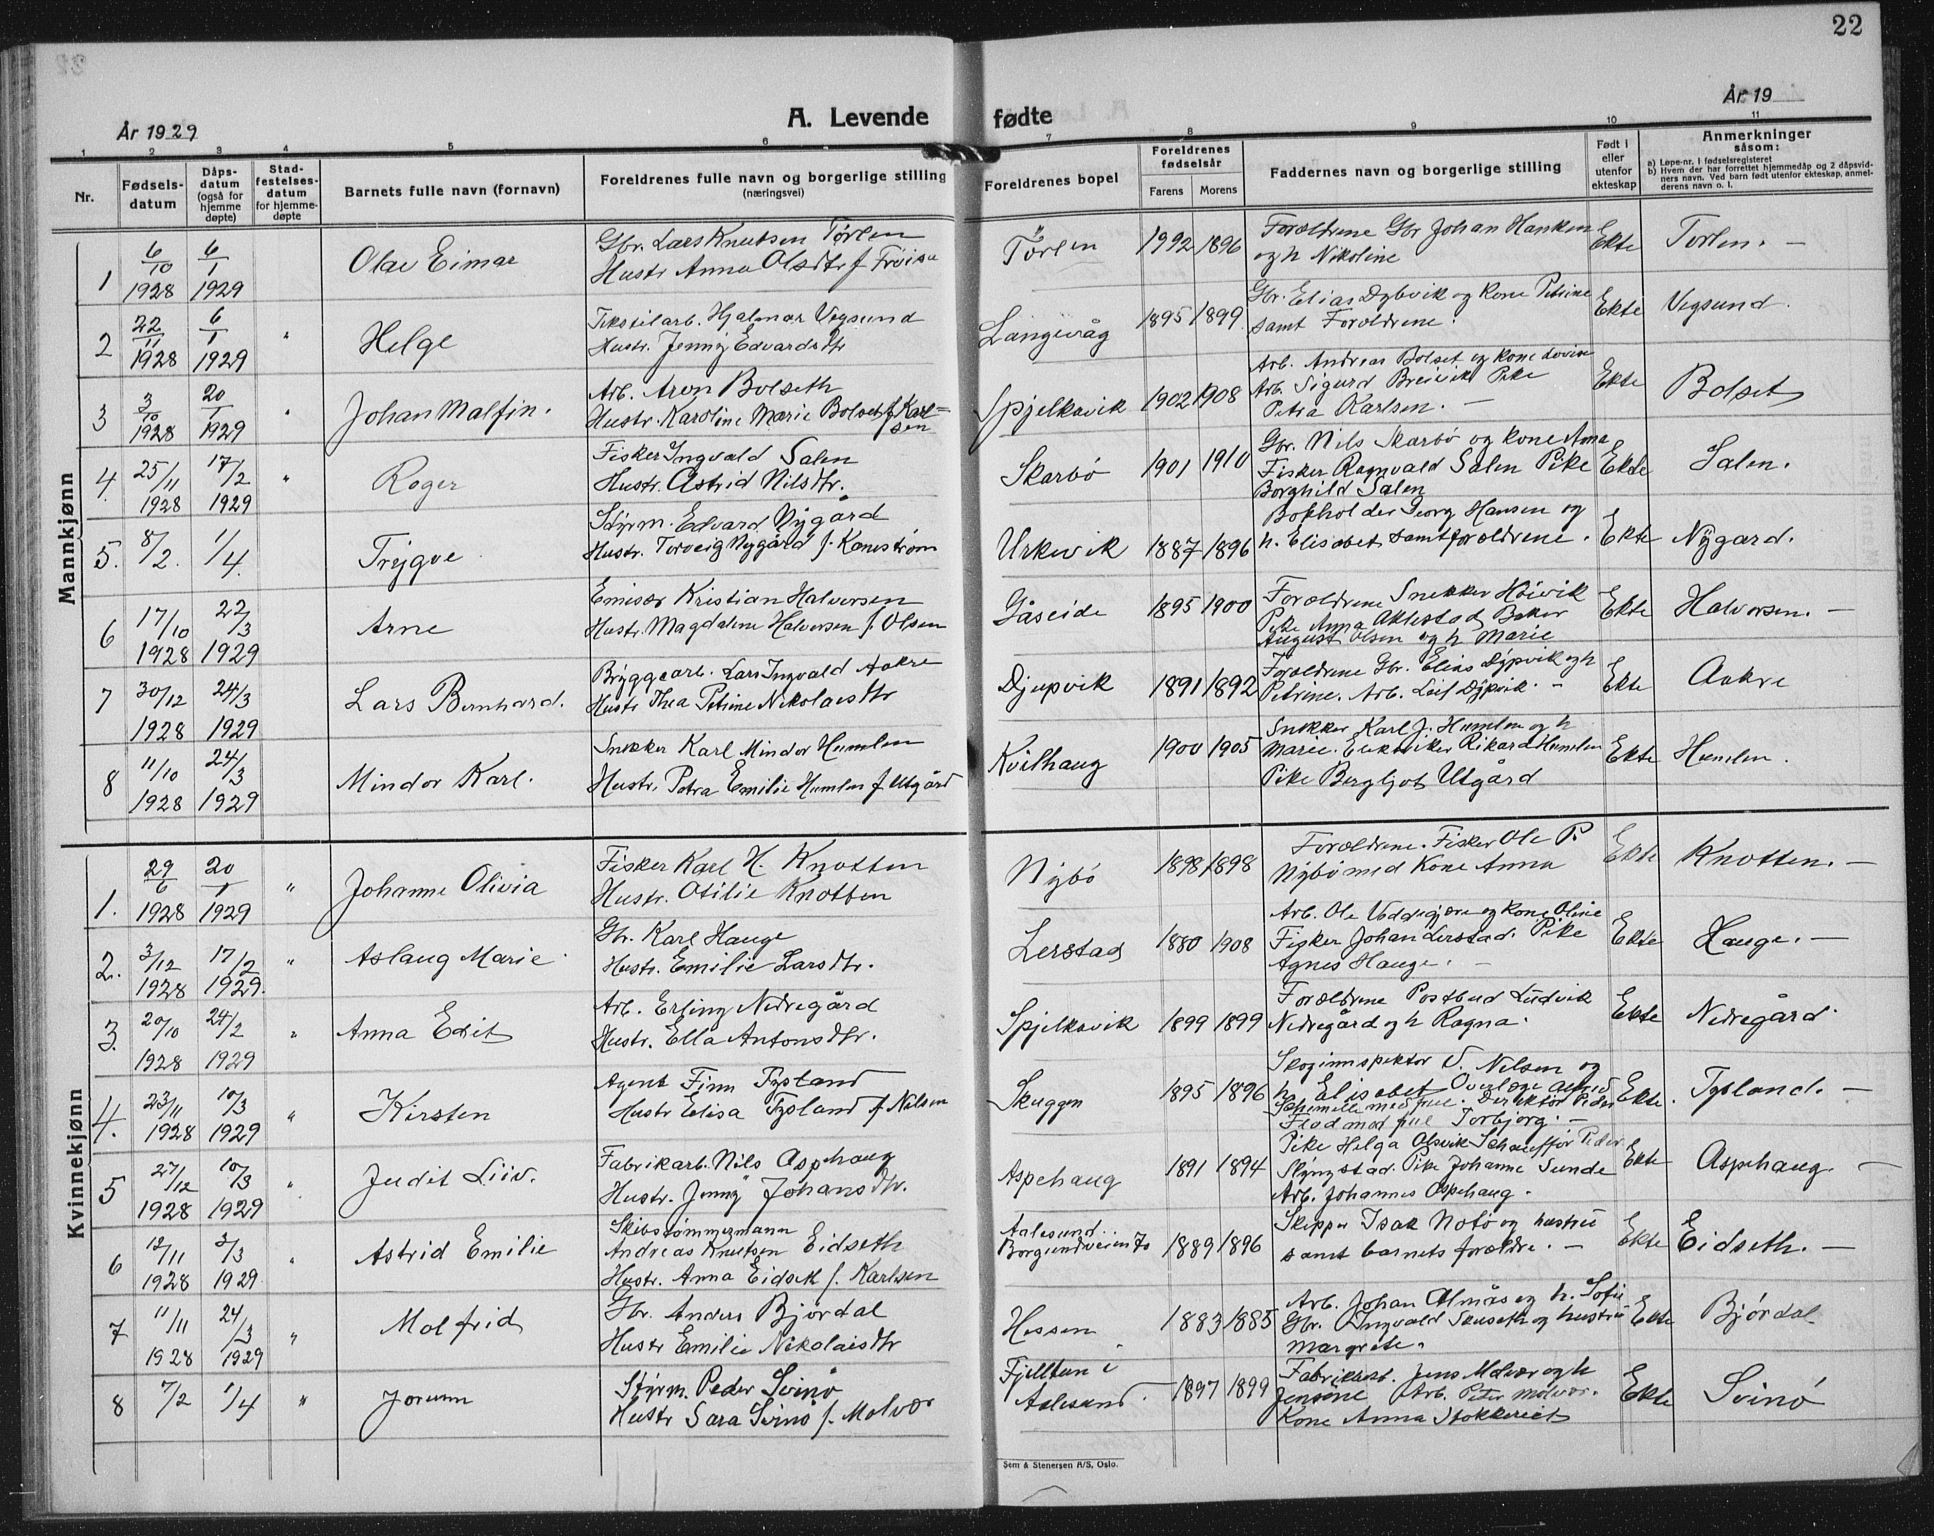 22
År 1929
A. Levende fødte
År 19
1 2 3 4 5 6 7 8 9 10 11
Nr.
Fødsels-
datum
Dåps-
datum
(også for
hjemme
døpte)
Stad-
festelses-
datum
for hjemme-
døpte
Barnets fulle navn (fornavn)
Foreldrenes fulle navn og borgerlige stilling
(næringsvei)
Foreldrenes bopel
Foreldrenes
fødselsår
Farens Morens
Faddernes navn og borgerlige stilling
Født i
eller
utenfor
ekteskap
Anmerkninger
såsom:
a) Løpe-nr. i fødselsregisteret
b) Hvem der har forrettet hjemmedåp og 2 dåpsvid-
ners navn. Ved barn født utenfor ekteskap, anmel-
derens navn o. l.
Mannkjønn
1 6/10 1928 6/1 1929 Olav Eimar
Gbr. Lars Knutsen Tørlen
Hustr Anna Olsdtr f Frøisa
Tørlen 1992 1896
Foreldrene Gbr Johan Hanken
og h Nikoline
Ekte Torlen. —
2 22/11 1928 6/1 1929 " Helge
Tekstilarb. Hjalmar Vegsund
Hustr. Jenny Edvardsdtr
Langevåg 1895 1899
Gbr. Elias Dybvik og Kone Petrine
samt Foreldrene.
Ekte Vegsund.
3 3/10 1928 20/1 1929 " Johan Malfin.
Arb. Aron Bolseth
Hustr. Karoline Marie Bolset f Karl=
sen
Spjelkavik 1902 1908
Arb. Andreas Bolset og Kone Lovise
Arb. Sigurd Breivik Pike
Petra Karlsen. —
Ekte Bolset
4. 25/11 1928 17/2 1929 " Roger
Fisker Ingvald Salen
Hustr. Astrid Nilsdtr.
Skarbø 1901 1910
Gbr. Nils Skarbø og Kone Ama
Fisker Ragnvald Salen Pike
Borghild Salen
Ekte Salen.
5. 8/2. 1/4. Trygve
Styrm. Edvard Nygård
Hustr. Torveig Nygård f. Kanestrøm
Urkevik 1887 1896
Bokholder Georg Hansen og
h. Elisabet samt foreldrene.
Ekte Nygard.
6 17/10 1928 22/3 1929 Arne
Emisær Kristian Halversen
Hustr. Magdalene Halversen f. Olsen
Gåseide 1895 1900
Foreldrene Snekker Høivik
Pike Anna Aklestad Baker
August Olsen og h Marie
Ekte Halversen. —
7 30/12 1928 24/3 1929 Lars Bernhard.
Bryggearb. Lars Ingvald Aakre
Hustr Thea Petrine Nikolaisdtr
Djupvik 1891 1892
Foreldrene Gbr. Elias Dypvik og h
Petrine. Arb. Leif Dypvik. —
Ekte Aakre
8 11/10 1928 24/3 1929 Mindor Karl.
Snekker Karl Mindor Humlen
Hustr. Petra Emilie Humlen f Utgård
Kvilhaug 1900 1905
Snekker Karl J. Humlen og h
Marie. Rikard Humlen
Pike Bergljot Utgård
Ekte Humlen.
Kvinnekjønn
1. 29/6 1928 20/1 1929 " Johanne Olivia
Fisker Karl H. Knotten
Hustr. Otilie Knotten
Nybø 1898 1898
Foreldrene. Fisker Ole P.
Nybø med Kone Anna
Ekte Knotten. —
2. 3/12 1928 17/2 1929. " Aslaug Marie
Gbr. Karl Hauge
Hustr. Emilie Larsdtr.
Lerstad 1880 1908
Arb. Ole Veddegjære og Kone Oline
Fisker Johan Lerstad. Pike
Agnes Hauge. —
Ekte Hauge. —
3. 20/10 1928 24/2 1929 " Anna Edit
Arb. Erling Nedregård
Hustr. Ella Antonsdtr.
Spjelkavik 1899 1899
Foreldrene Postbud Ludvik
Nedregård og h Ragna.
Ekte Nedregård.
4. 23/11 1928 10/3 1929 " Kirsten
Agent Finn Tysland
Hustr Elisa Tysland f Nilsen
Skuggen 1895 1896
Skoginspektør V. Nilsen og
h Elisabet Overlæge
med frue. Direktør Peder
Flod med frue Torbjørg. —
Ekte. Tysland. —
5 27/12 1928 10/3 1929 " Judit Liiv.
Fabrikarb. Nils Aspehaug
Hustr. Jenny Johansdtr.
Aspehaug 1891 1894
Pike Helga Olsvik Schauffør Peder
Slyngstad. Pike Johanne Sunde
Arb. Johannes Aspehaug.
Ekte Aspehaug. —
6 12/11 1928 3/3 1929 " Astrid Emilie
Skibstømmermann
Andreas Knutsen Eidseth
Hustr. Anna Eidseth f. Karlsen
Aalesund
Borgundveien 70 1889 1896
Skipper Isak Notø og hustru
samt barnets foreldre. —
Ekte Eidseth. —
7 11/11 1928 24/3 1929 " Molfrid
Gbr. Anders Bjørdal
Hustr Emilie Nikolaisdtr
Hessen 1883 1885
Arb. Johan Almås og h. Sofie
Gbr. Ingvald Skuseth og hustru
Margrete.
Ekte Bjørdal
8 7/2 1/4 " Jorunn
Styrm. Peder Svinø
Hustr Sara Svinø f. Molvær
Fjelltun i
Aalesund. 1897 1899
Fabrikarb. Jens Molvær og h
Jensine Arb. Peter Molvær.
Kone Anna Stokkereit
Ekte Svinø
Sem & Stenersen A/S, Oslo.